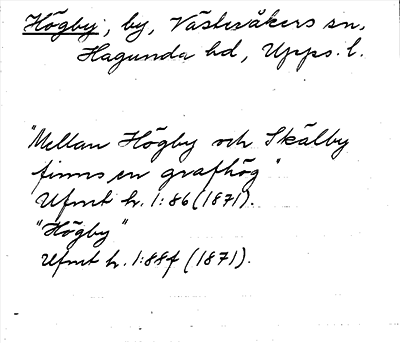 Högby, by, Västeråkers sn,
Hagunda hd, Upps. l.
"Mellan Högby och Skälby
finns en grafhög"
Ufmt h. 1:86 (1871).
"Högby"
Ufmt h. 1:88f (1871).